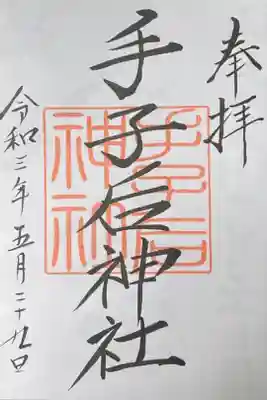 奉拝
手子后神社
令和三年五月二十九日
手子后
神社